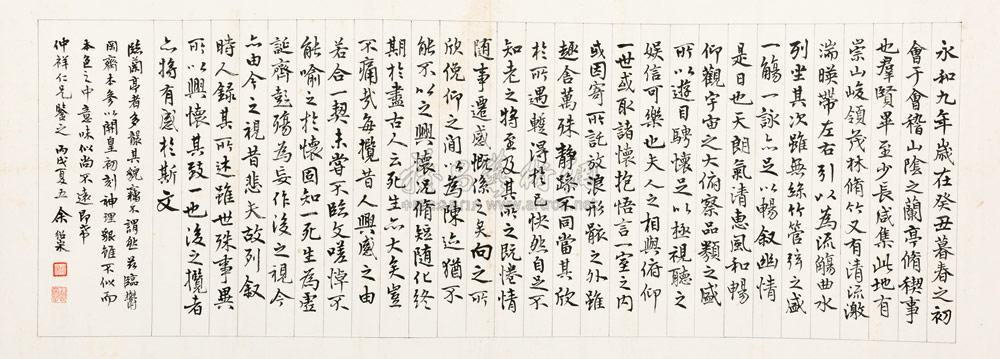 永和九年歲在癸丑暮春之初
會于會稽山陰之蘭亭脩稧事
也羣賢畢至少長咸集此地有
崇山峻領茂林脩竹又有清流激
湍暎帶左右引以為流觴曲水
列坐其次雖無絲竹管弦之盛
一觴一詠亦足以暢叙幽情
是日也天朗氣清惠風和暢
仰觀宇宙之大俯察品類之盛
所以遊目騁懷足以極視聽之
娛信可樂也夫人之相與俯仰
一世或取諸懷抱悟言一室之內
或因寄所託放浪形骸之外雖
趣舍萬殊静躁不同當其欣
於所遇蹔得於己快然自足不
知老之將至及其所之既惓情
随事遷感慨係之矣向之所
欣俛仰之間以為陳迹猶不
能不以之興懷況脩短随化終
期於盡古人云死生亦大矣豈
不痛哉每攬昔人興感之由
若合一契未嘗不臨文嗟悼不
能喻之於懷固知一死生為虛
誕齊彭殤為妄作後之視今
亦由今之視昔悲夫故列叙
時人錄其所述雖世殊事異
所以興懷其致一也後之攬者
亦將有感於斯文
臨蘭亭者多襲其貌竊不謂然茲臨鬱
岡齋本參以開皇初刻神理貌雖不似而
本色之中意味似尚不遠即希
仲祥仁兄鑒之 丙戌夏五 余紹宋